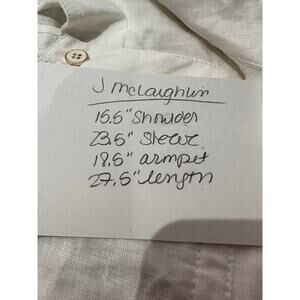 J McLaughlin
15.5" Shoulder
23.5" Sleeve
18.5" armpit
27.5" length